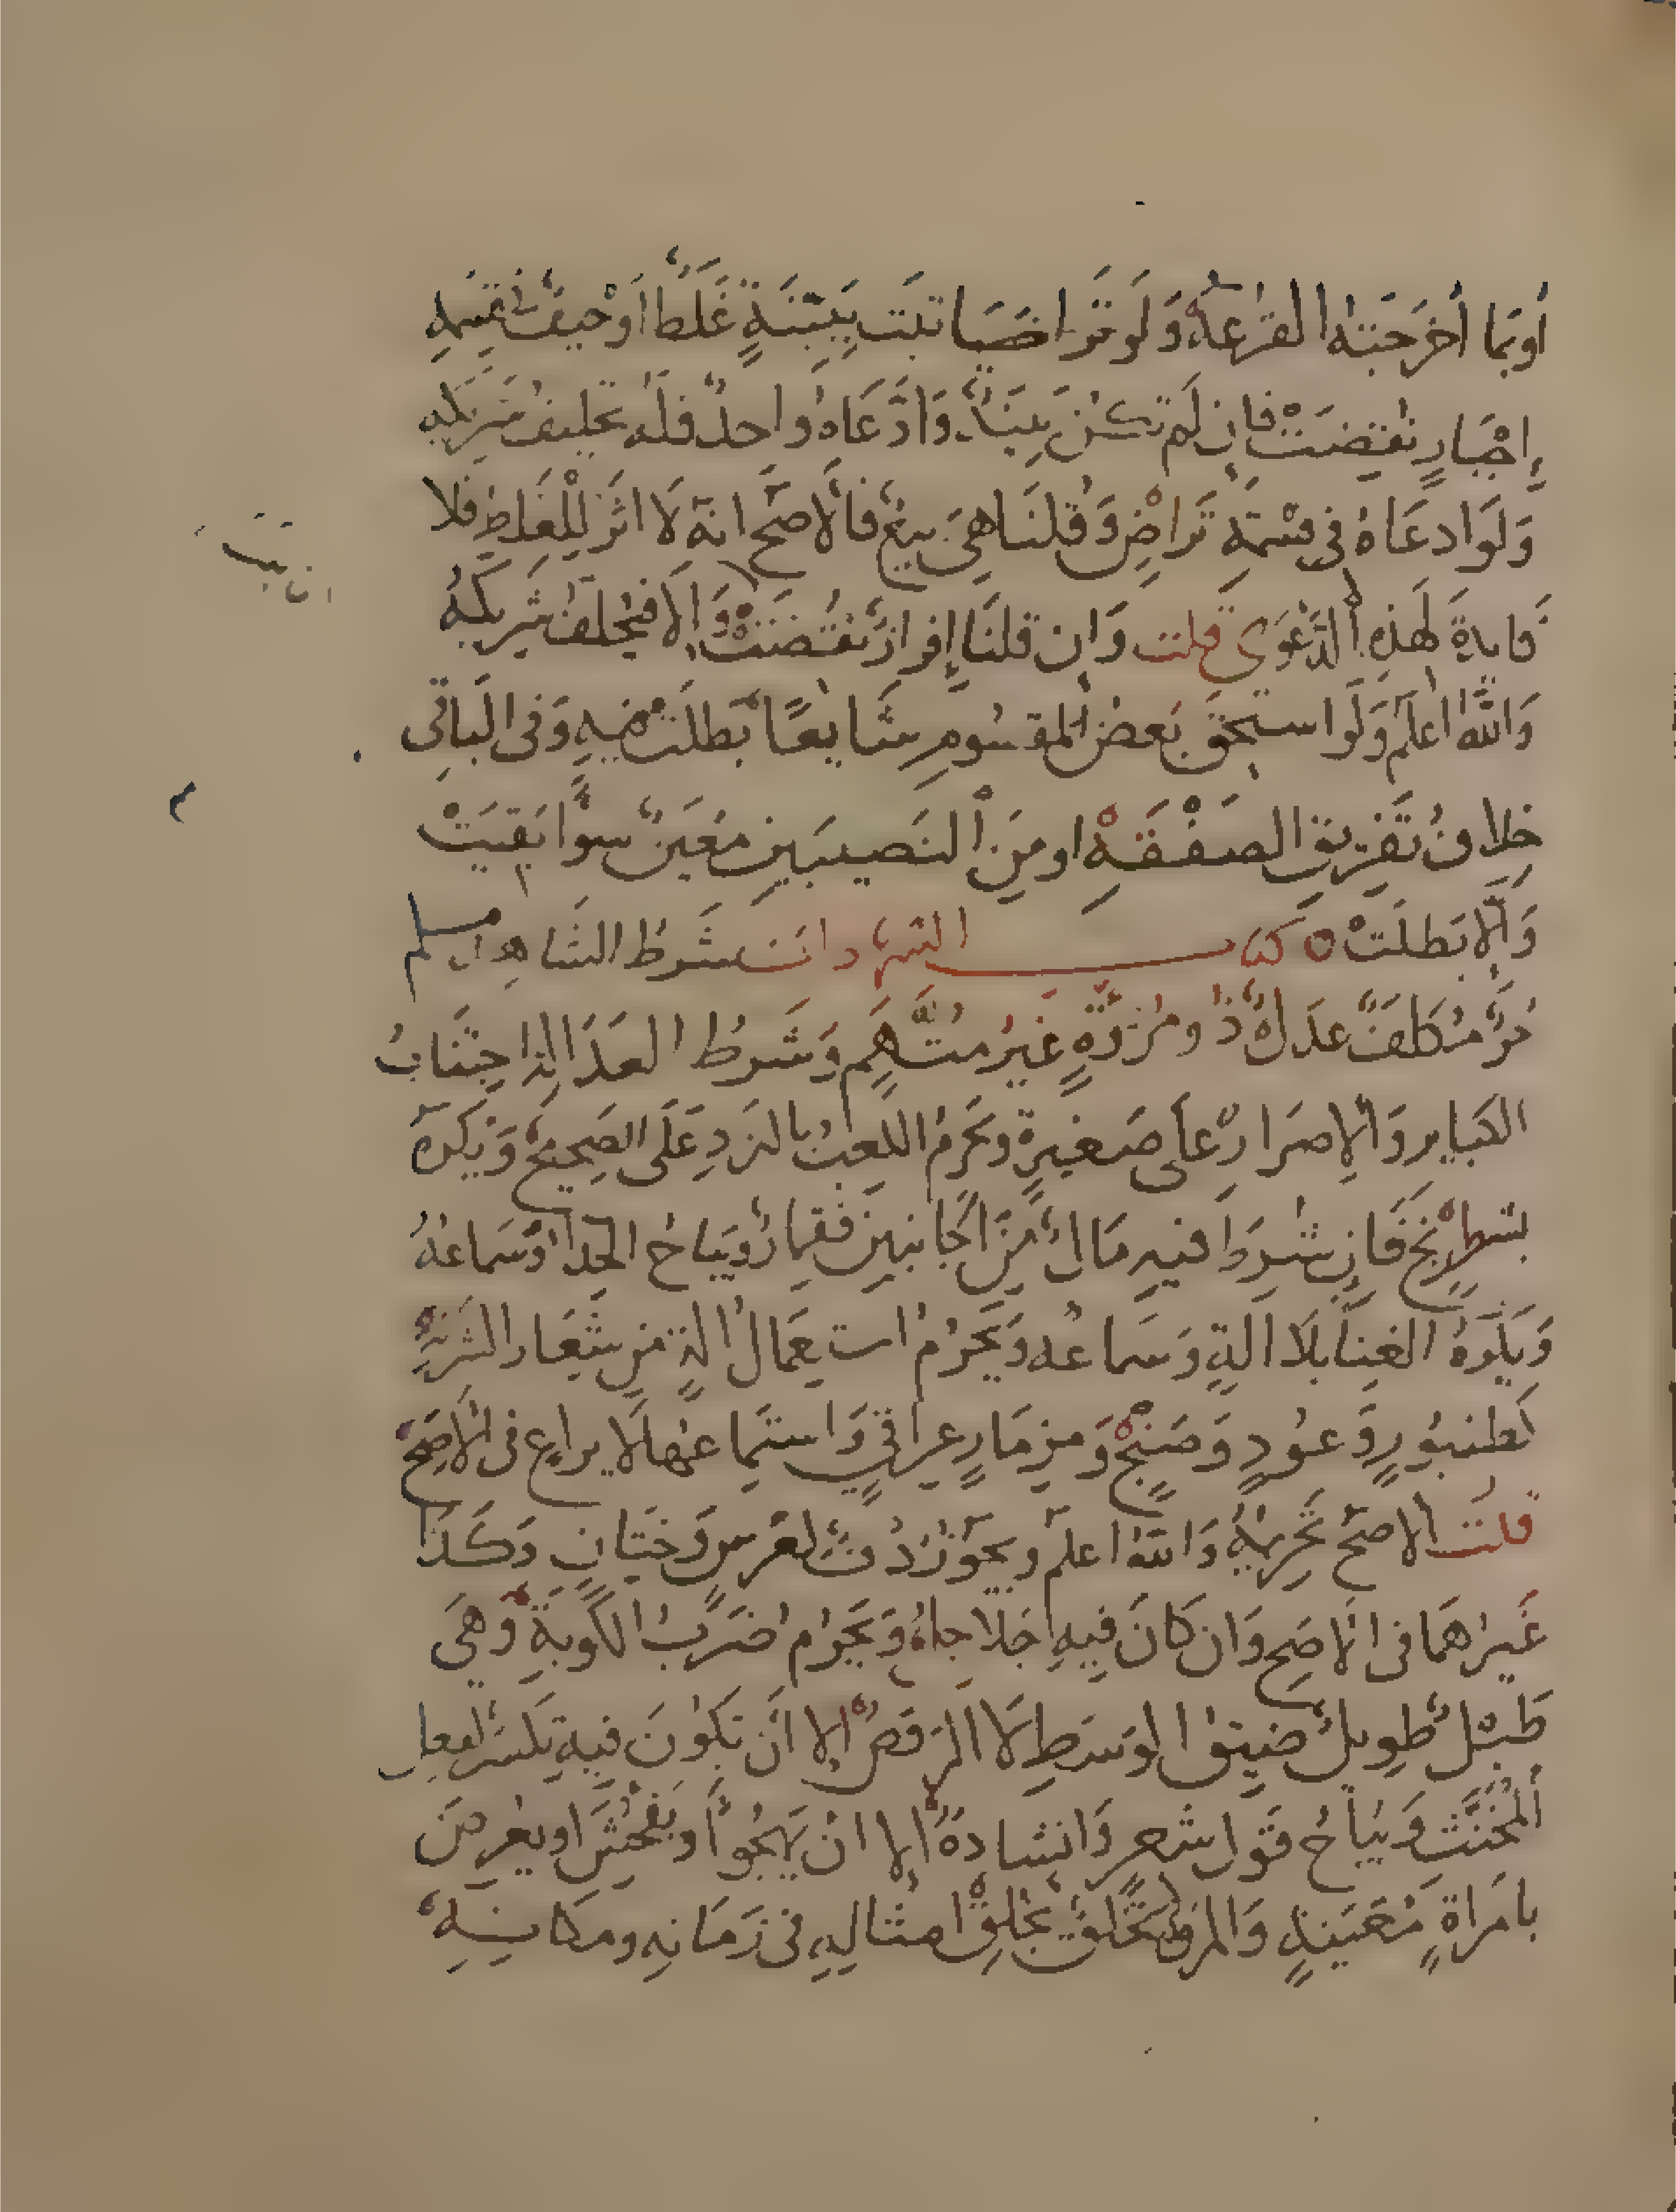 أو بما أخرجته القرعة ولو تراضيا ثبت ببينة غلط أو حيف في قسمة
إجبار نقضت فإن لم تكن بينة وادعاه واحد فله تحليف شريكه
ولو ادعاه في قسمة تراض وقلنا هي بيع فالأصح انه لا اثر للغلط فلا
فايدة لهذه الدعوى قلت وان قلنا إفراز نقضت إن ثبت وإلا فيحلف شريكه
والله اعلم ولو استحق بعض المقسوم شايعا بطلت فيه وفي الباقي
خلاف تفريق الصفقة او من النصيبين معين سوا بقيت
وإلا بطلت ه كتاب الشهادات شرط الشاهد مسلم
حر مكلف عدل ذو مروة غير متهم وشرط العدالة اجتناب
الكباير والإصرار على صغيرة ويحرم اللعب بالنرد على الصحيح ويكره
بشطرنج فإن شرط فيه مال من الجانبين فقمار ويباح الحدا وسماعه
ويكره الغنا بلا الة وسماعه ويحرم استعمال الة من شعار الشربة
كطنبور وعود وصنج ومزمار عراقي واستماعها لا يراع في الأصح
قلت الاصح تحريمه والله اعلم ويجوز دف لعرس وختان وكذا
غيرهما في الاصح وان كان فيه جلاجل ويحرم ضرب الكوبة وهي
طبل طويل ضيق الوسط لا الرقص إلا أن يكون فيه تكسر كفعل
المخنث ويباح قول شعر وانشاده إلا ان يهجوا أو يفحش او يعرض
بامراة معينة والمروة تخلق بخلق امثاله في زمانه ومكانه